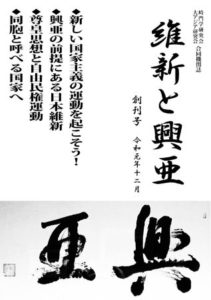 崎門学研究会
大アジア研究会
合同機関誌
維新と興亜
創刊号 令和元年十二月
◆新しい国家主義の運動を起こそう！
◆興亜の前提にある日本維新
◆尊皇思想と自由民権運動
◆同胞と呼べる国家へ
興亜